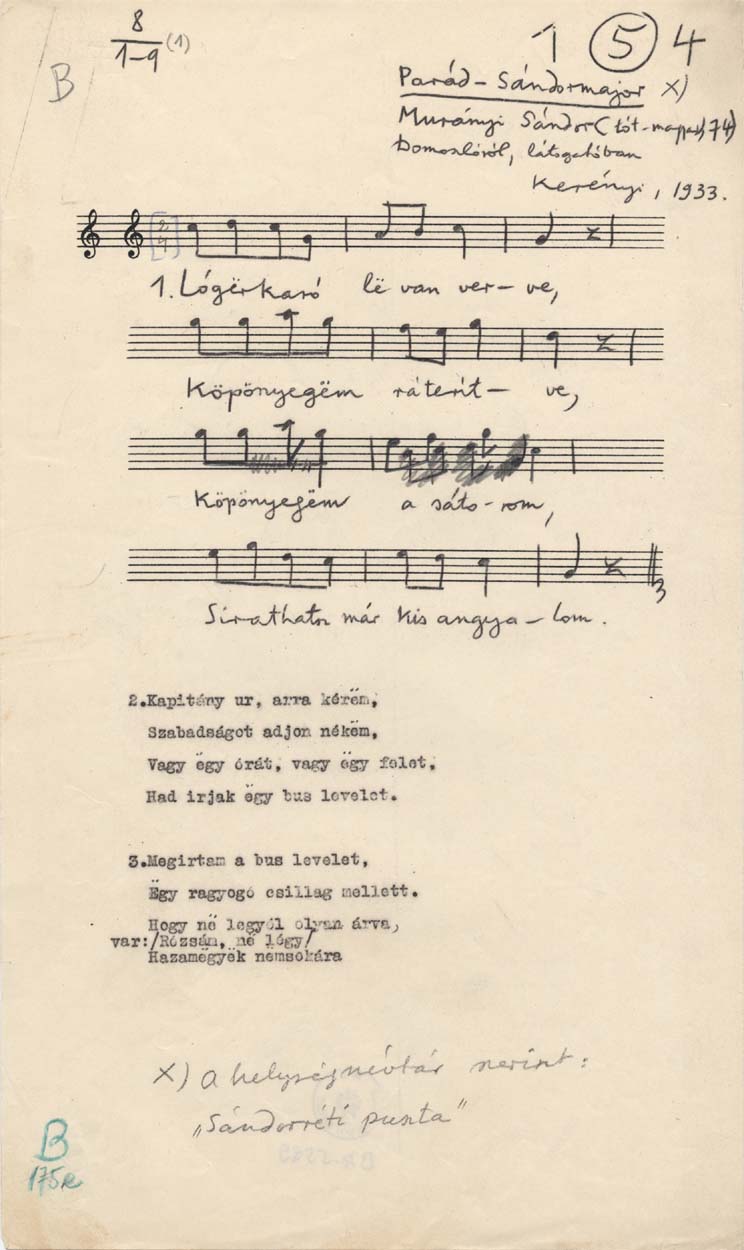 8
1-9 (1)
1 5 4
B
Parád – Sándormajor x)
Murányi Sándor (tót-magyar, 74)
Domoszlóról, látogatóban
Kerényi, 1933.
2
4
1. Lógërkaró lë van ver– ve,
Köpönyegëm ráterít– ve,
Köpönyegëm a sáto–rom,
Sirathatsz már kis angya–lom.
2.Kapitány ur, arra kérëm,
Szabadságot adjon nékëm,
Vagy ëgy órát, vagy ëgy felet,
Had irjak ëgy bus levelet.
3.Megirtam a bus levelet,
Ëgy ragyogó csillag mellett.
Hogy në legyél olyan árva,
var:/Rózsám, në légy/
Hazamëgyëk nemsokára
x) a helységnévtár szerint:
„Sándorréti puszta”
B
175e